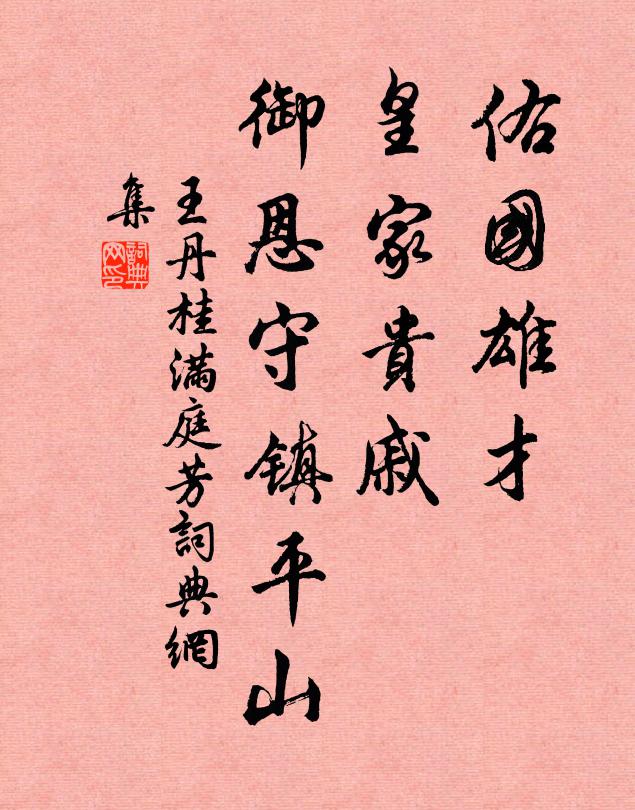 佑國雄才
皇家貴戚
御恩守鎮平山
王丹桂滿庭芳詞典網
集
詞典
网印